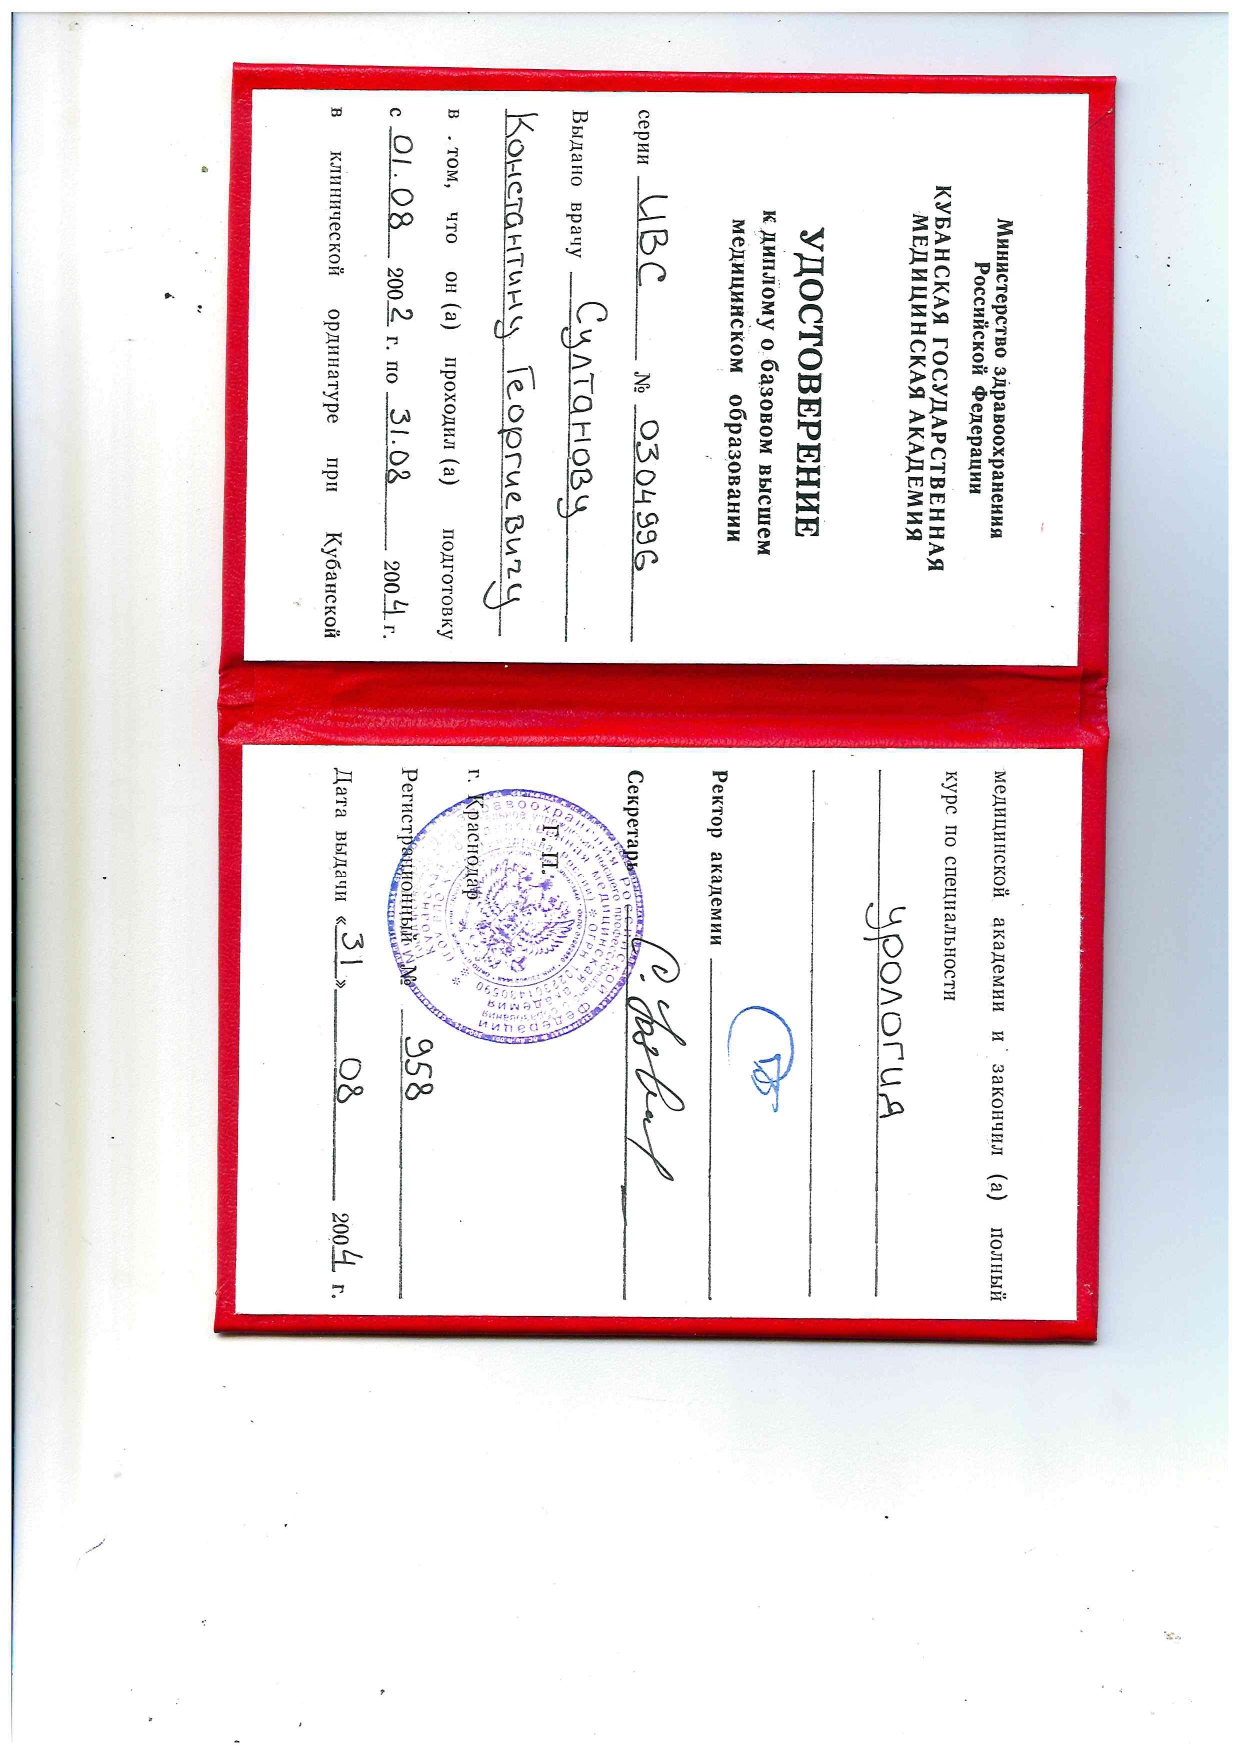 Министерство здравоохранения
Российской Федерации
КУБАНСКАЯ ГОСУДАРСТВЕННАЯ
МЕДИЦИНСКАЯ АКАДЕМИЯ
УДОСТОВЕРЕНИЕ
к диплому о базовом высшем
медицинском образовании
серии ИВС № 0304996
Выдано врачу Султанову
Константину Георгиевичу
в . том, что он (а) проходил (а) подготовку
с 01.08 2002 г. по 31.08 2004 г.
в клинической ординатуре при Кубанской
медицинской академии и закончил (а) полный
курс по специальности
урология
Ректор академии
Секретарь
Г. П.
г. Краснодар
Регистрационный № 958
Дата выдачи «31» 08 2004 г.